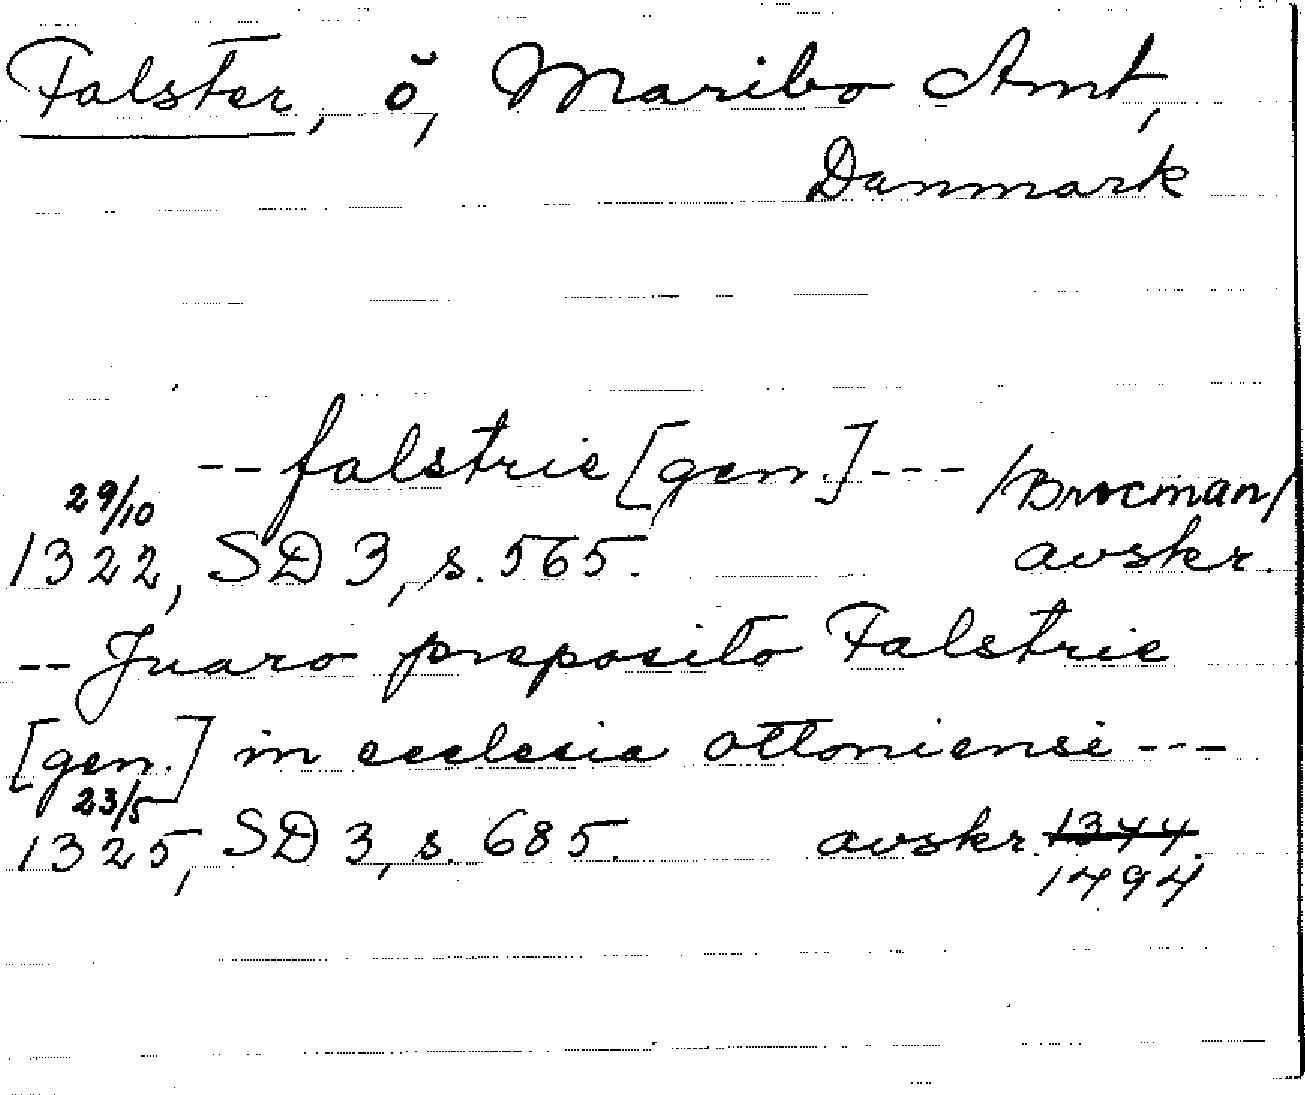 Falster, ö, Maribo Amt,
Danmark
-- falstrie [gen.] --- /Brocman/
29/10
1322, SD 3, s. 565. avskr.
-- Juaro preposito Falstrie
[gen.] in ecclesia ottoniensi ---
23/5
1325, SD 3, s. 685. avskr. 1344.
1494